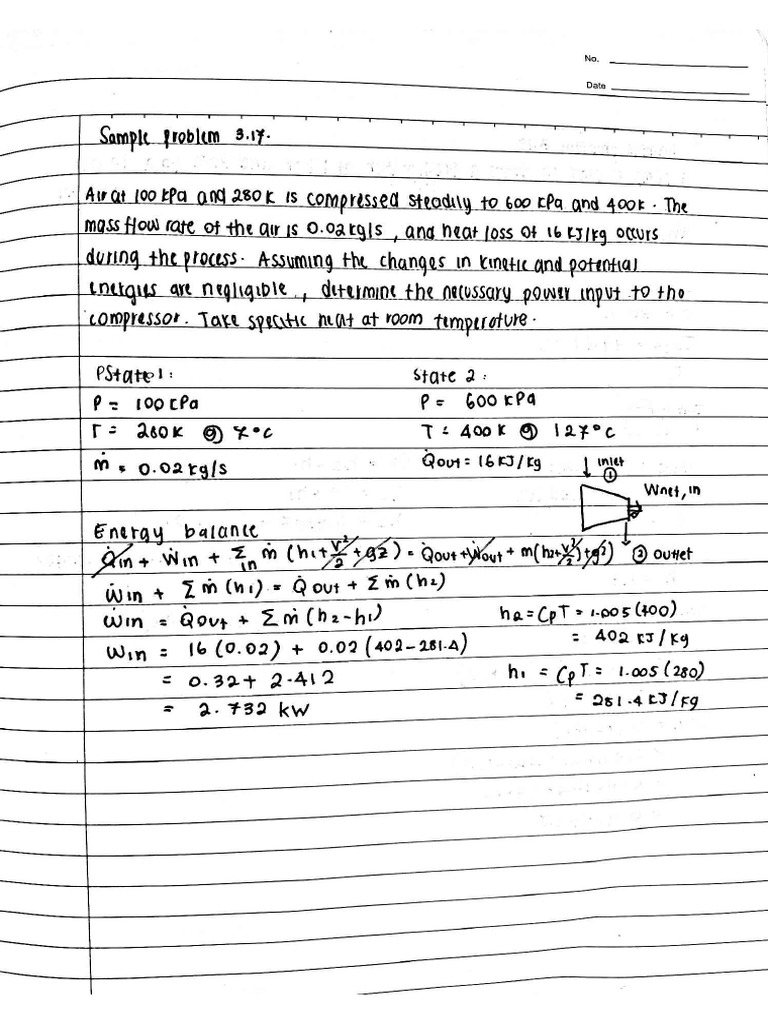 No.
Date
Sample problem 3.17.
Air at 100 kPa and 280 K is compressed steadily to 600 kPa and 400 K. The
mass flow rate of the air is 0.02 kg/s, and heat loss of 16 kJ/kg occurs
during the process. Assuming the changes in kinetic and potential
energies are negligible, determine the necessary power input to the
compressor. Take specific heat at room temperature.
PState 1: State 2:
P = 100 kPa P = 600 kPa
T = 280 K @ 7°C T = 400 K @ 127°C
ṁ = 0.02 kg/s Q̇out = 16 kJ/kg
inlet
①
Wnet, in
② outlet
Energy balance
Q̇in + Ẇin + Σin ṁ (h1 + V²/2 + gz) = Q̇out + Ẇout + ṁ(h2 + V²/2 + gz)
Ẇin + Σ ṁ (h1) = Q̇out + Σ ṁ (h2)
Ẇin = Q̇out + Σ ṁ (h2-h1) h2 = CpT = 1.005 (400)
= 402 kJ/kg
Win = 16 (0.02) + 0.02 (402 - 281.4) h1 = CpT = 1.005 (280)
= 0.32 + 2.412 = 281.4 kJ/kg
= 2.732 kW